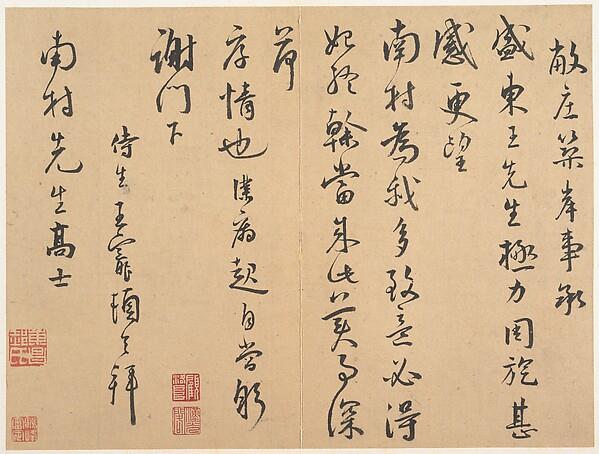 敝庄築岸事承
盛東王先生極力周旋甚
感更望
南村為我多致意必得
始終幹當成此美事深
荷
厚情也僕病起自當躬
謝門下
侍生王寵頓首拜
南村先生高士